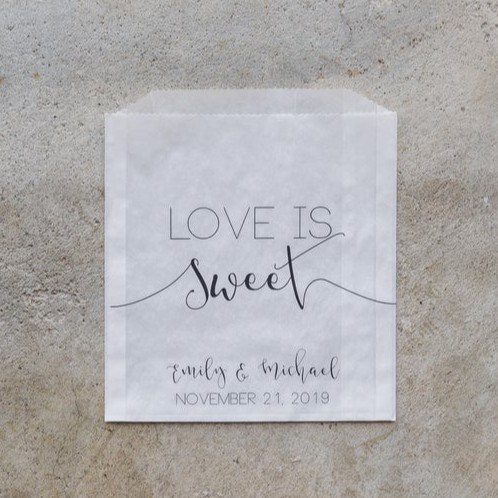 LOVE IS
sweet
Emily & Michael
NOVEMBER 21, 2019